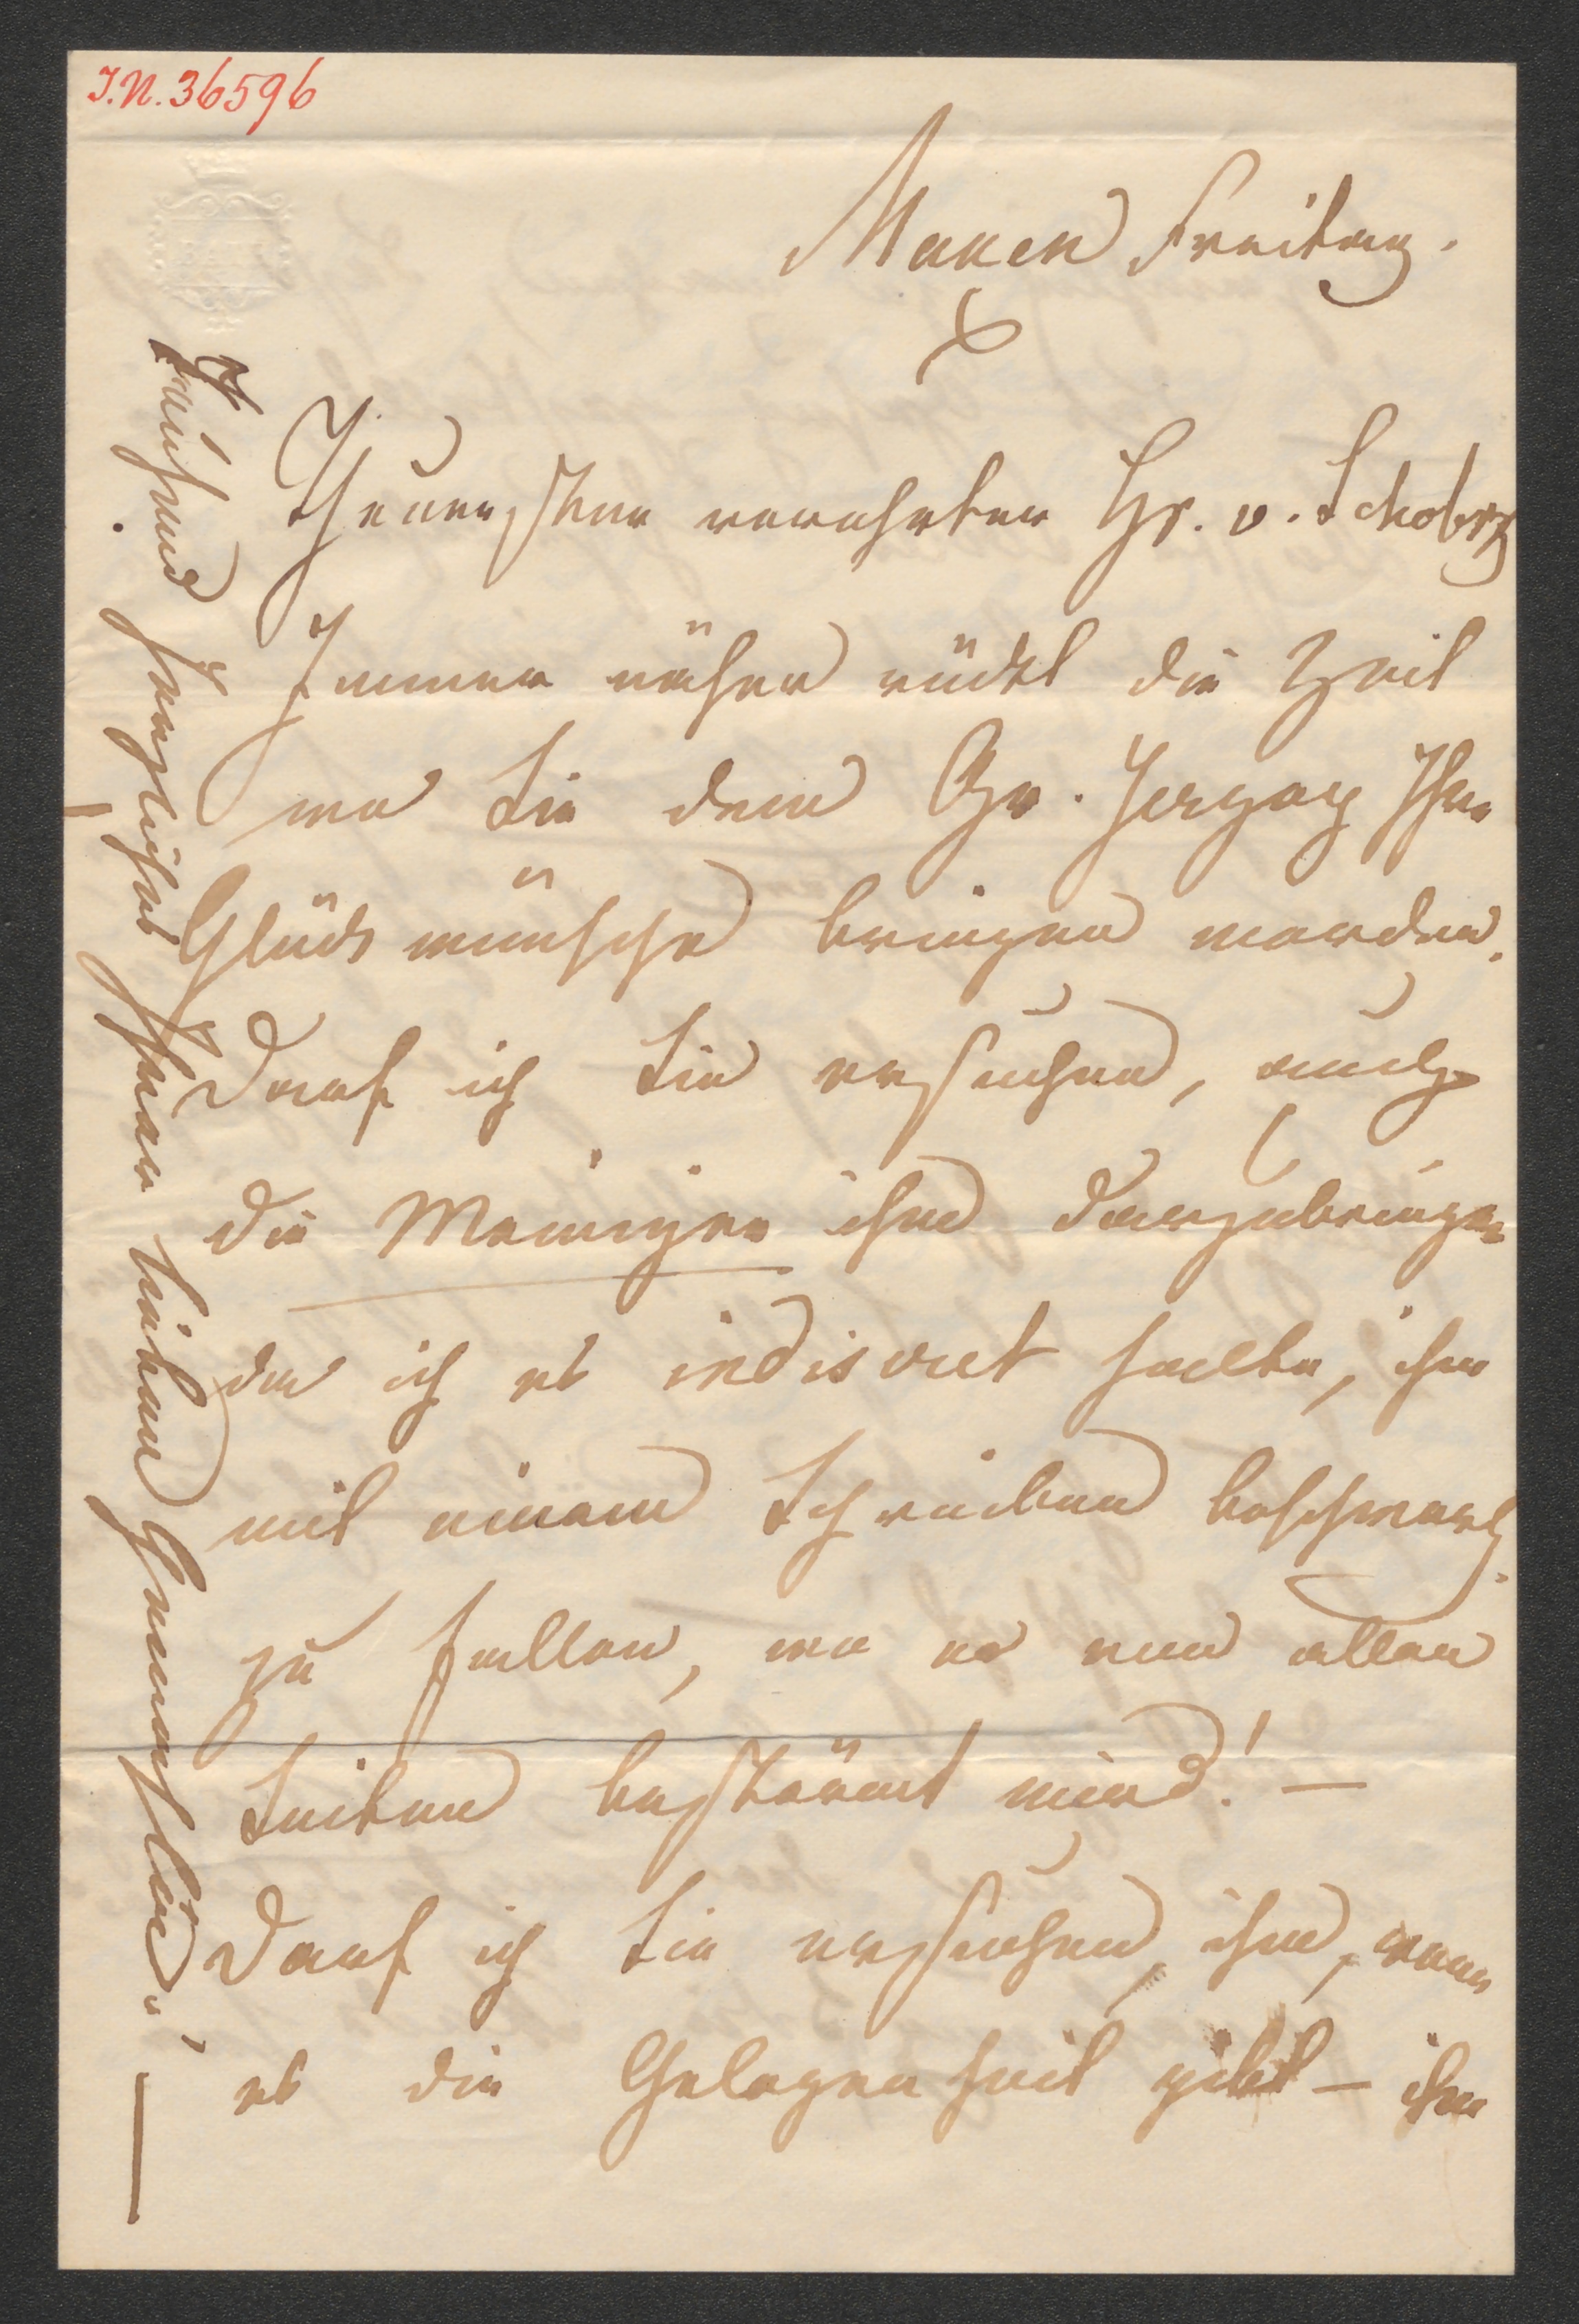 I.N. 36596
Maxen Freitag.
Theuerster verehrter Hr. v. Schober
Immer näher rückt die Zeit
wo Sie dem Gr. Herzog Ihre
Glückwünsche bringen werden.
Darf ich Sie ersuchen, auch
die Meinigen ihm darzubringen
da ich es indiscret halte, ihm
mit einem Schreiben beschwerl.
zu fallen, wo er von allen
Seiten bestürmt wird! —
Darf ich Sie ersuchen, ihm, wenn
es die Gelegenheit gibt — ihm
Tausend herzliches Ihrer lieben Gemahlin. —